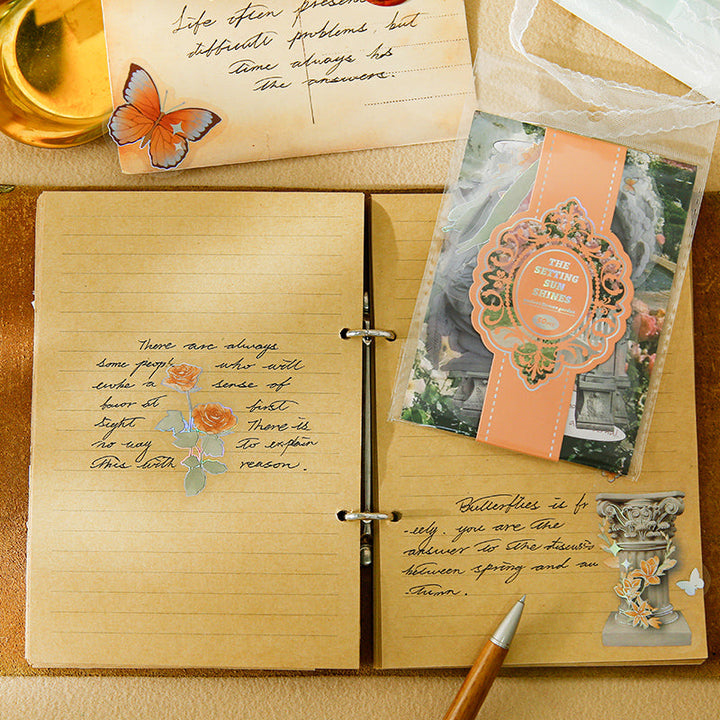 Life often presents
difficult problems, but
time always has
the answers.
THE
SETTING
SUN
SHINES
There are always
some people who will
evoke a sense of
favor at first
sight There is
no way to explain
this with reason.
Butterflies is fr
-eely. you are the
answer to the discussio
between spring and au
-tumn.